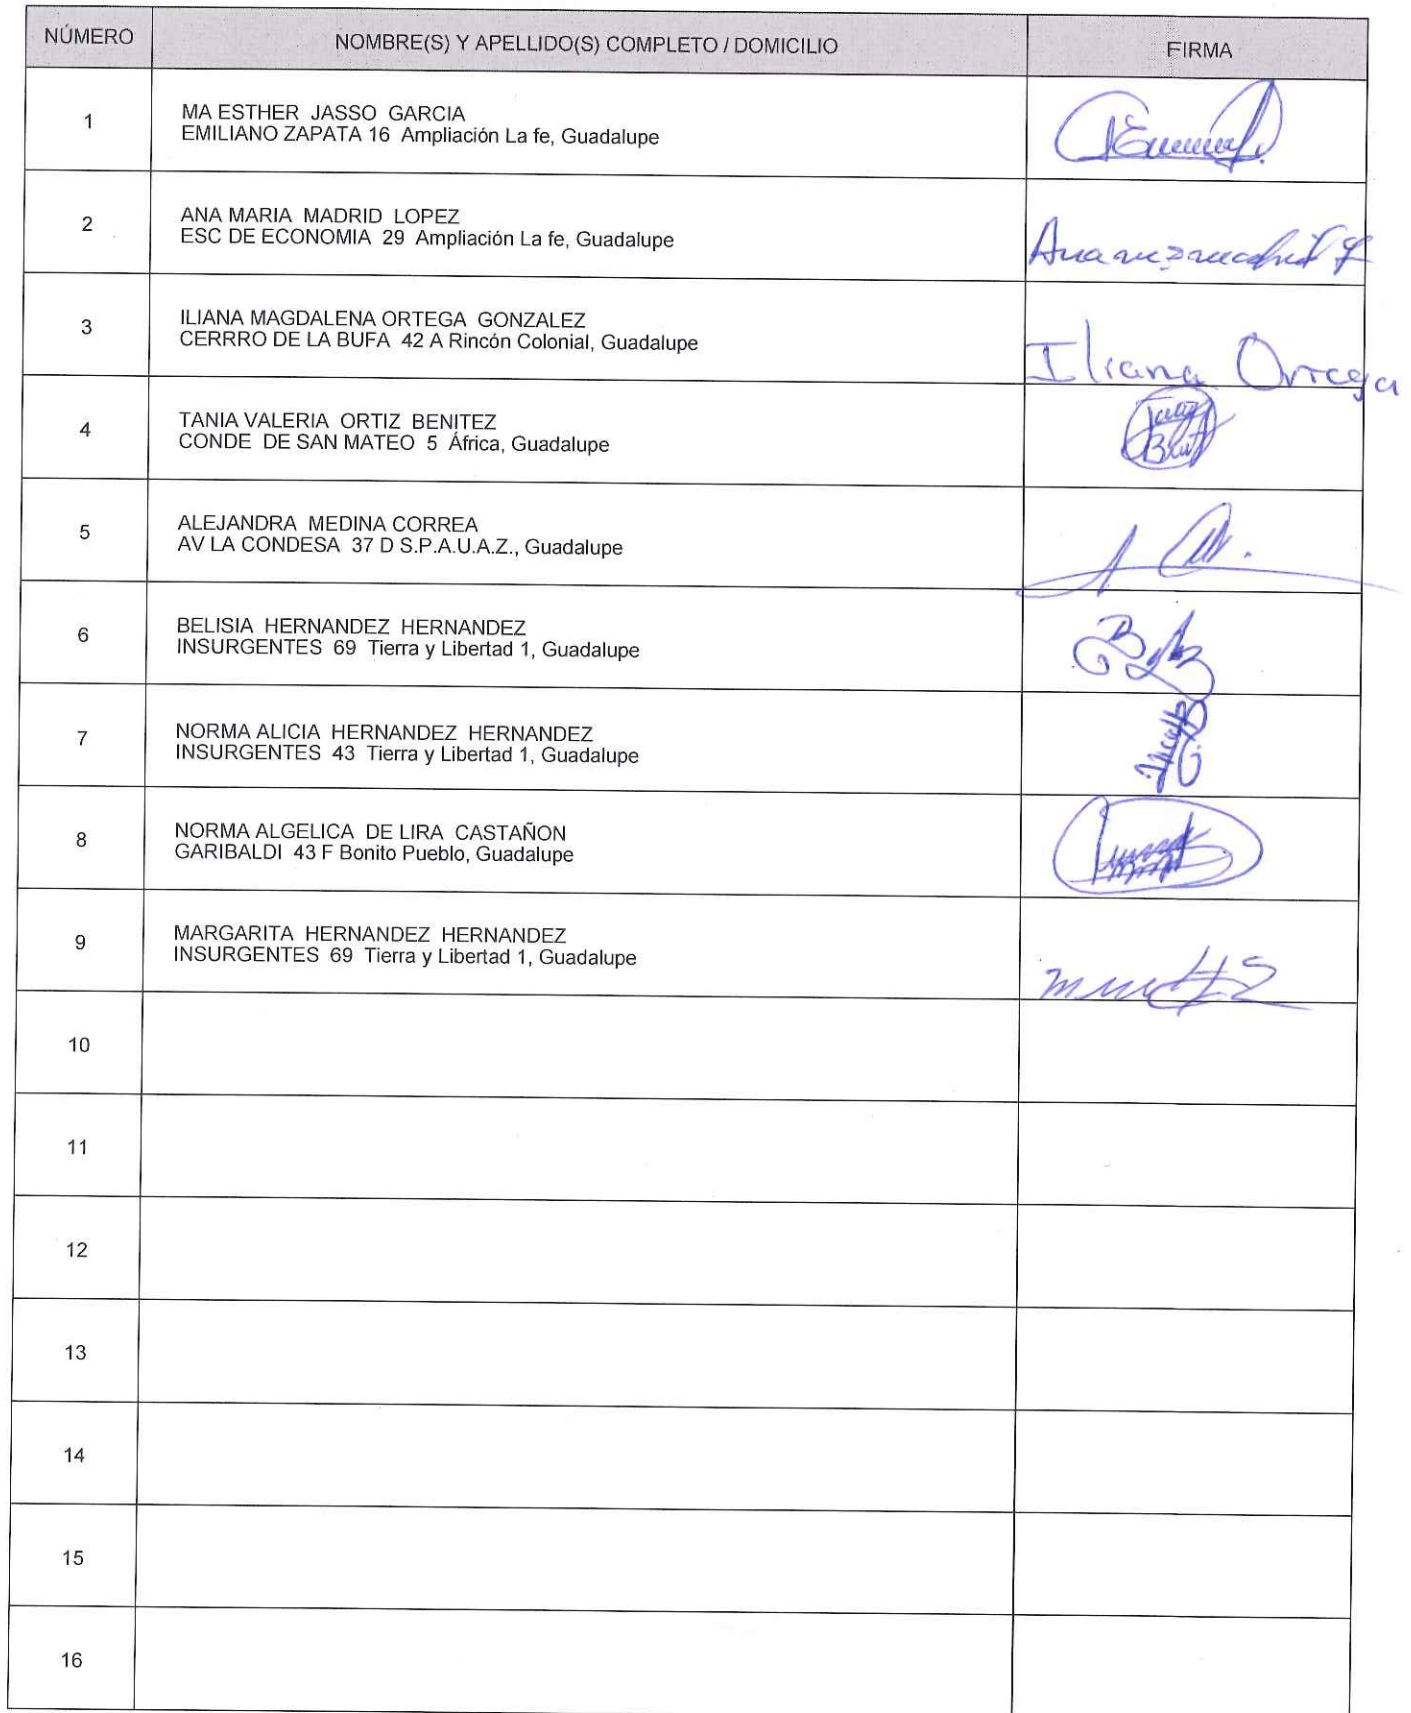 NÚMERO NOMBRE(S) Y APELLIDO(S) COMPLETO / DOMICILIO FIRMA
1 MA ESTHER JASSO GARCIA
EMILIANO ZAPATA 16 Ampliación La fe, Guadalupe
2 ANA MARIA MADRID LOPEZ
ESC DE ECONOMIA 29 Ampliación La fe, Guadalupe
3 ILIANA MAGDALENA ORTEGA GONZALEZ
CERRRO DE LA BUFA 42 A Rincón Colonial, Guadalupe
Iliana Ortega
4 TANIA VALERIA ORTIZ BENITEZ
CONDE DE SAN MATEO 5 África, Guadalupe
5 ALEJANDRA MEDINA CORREA
AV LA CONDESA 37 D S.P.A.U.A.Z., Guadalupe
6 BELISIA HERNANDEZ HERNANDEZ
INSURGENTES 69 Tierra y Libertad 1, Guadalupe
7 NORMA ALICIA HERNANDEZ HERNANDEZ
INSURGENTES 43 Tierra y Libertad 1, Guadalupe
8 NORMA ALGELICA DE LIRA CASTAÑON
GARIBALDI 43 F Bonito Pueblo, Guadalupe
9 MARGARITA HERNANDEZ HERNANDEZ
INSURGENTES 69 Tierra y Libertad 1, Guadalupe
10
11
12
13
14
15
16